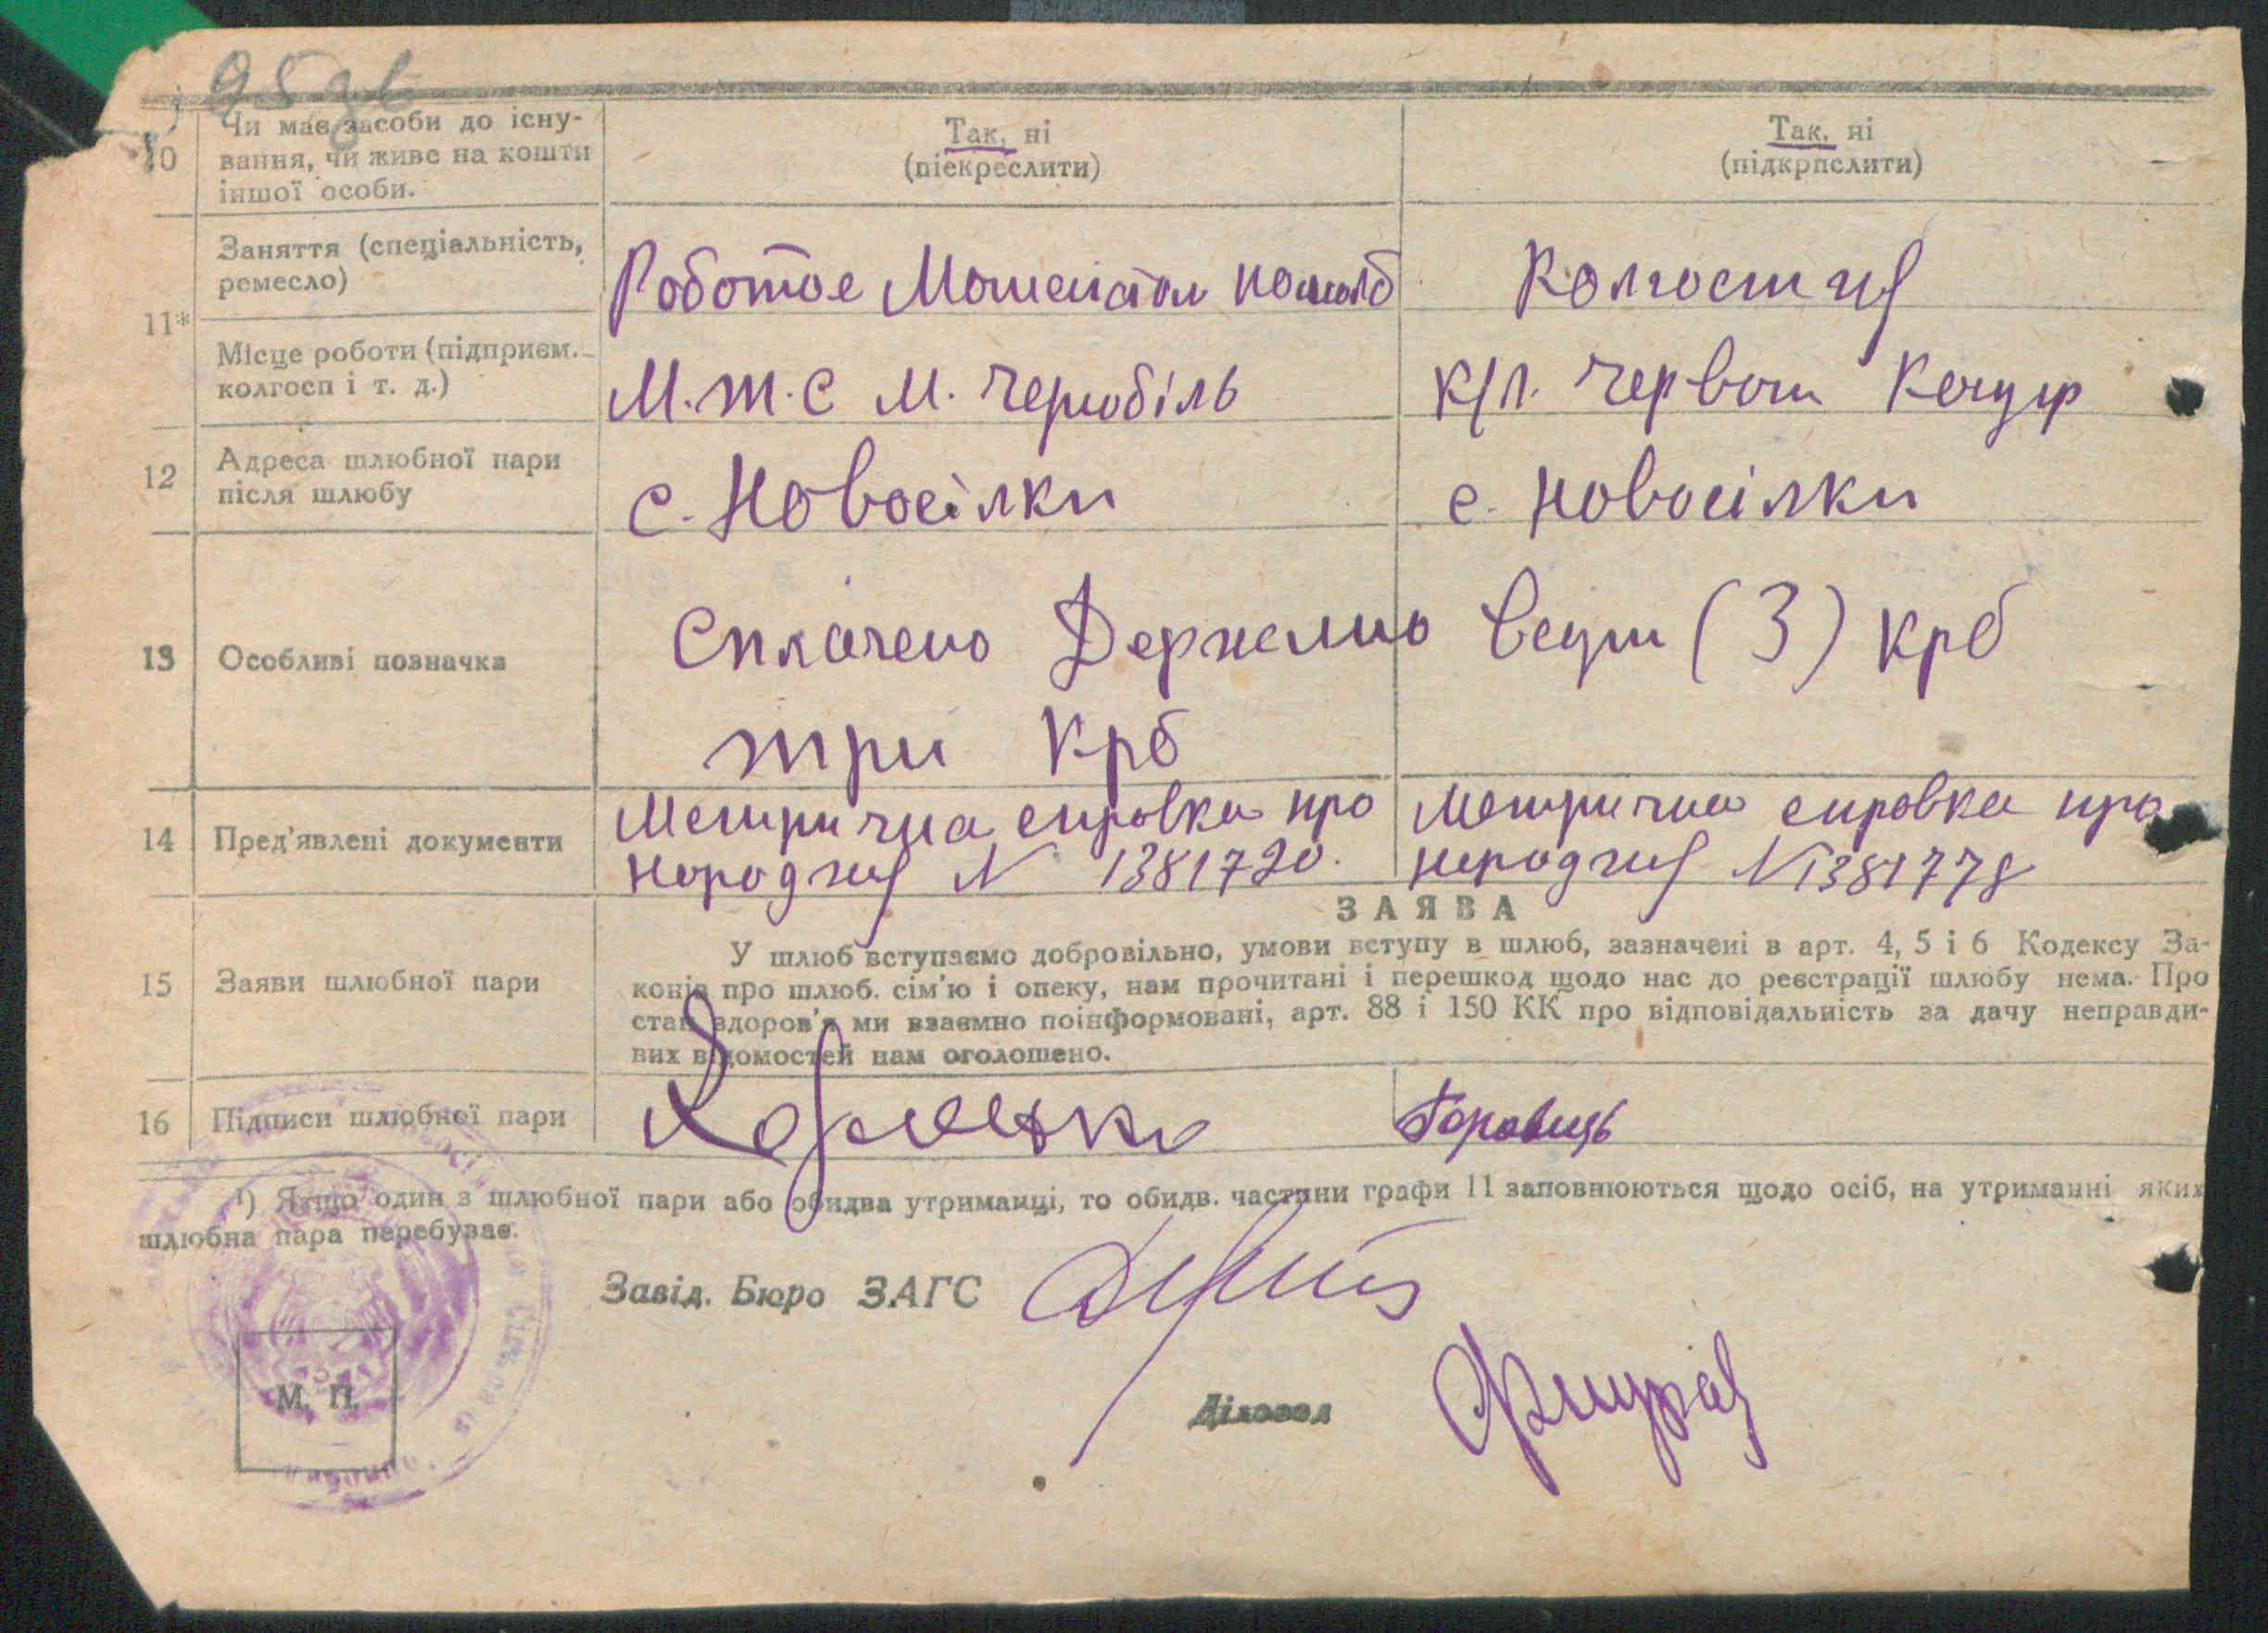 95 зв
10 Чи має засоби до існу-
вання, чи живе на кошти
іншої особи.
Так, ні
(піекреслити)
Так, ні
(підкрпслити)
11* Заняття (спеціальність,
ремесло)
Роботає
Колгоспниця
Місце роботи (підприєм.
колгосп і т. д.)
М.Т.С м. Чернобіль
к/г. Червон
12 Адреса шлюбної пари
після шлюбу
с. Новосілки
с. Новосілки
13 Особливі позначка
Сплачено Держмито (3) крб
три крб
14 Пред'явлені документи
Метрична справка про
народження N 1381720.
Метрична справка про
народження N 1381778
15 Заяви шлюбної пари
ЗАЯВА
У шлюб вступаємо добровільно, умови вступу в шлюб, зазначені в арт. 4, 5 і 6 Кодексу За-
конів про шлюб. сім'ю і опеку, нам прочитані і перешкод щодо нас до реєстрації шлюбу нема. Про
стан здоров'я ми взаємно поінформовані, арт. 88 і 150 КК про відповідальність за дачу неправди-
вих відомостей нам оголошено.
16 Підписи шлюбної пари
Горовиць
¹) Якщо один з шлюбної пари або обидва утриманці, то обидв. частини графи 11 заповнюються щодо осіб, на утриманні яких
шлюбна пара перебуває.
Завід. Бюро ЗАГС
М. П.
Діловод